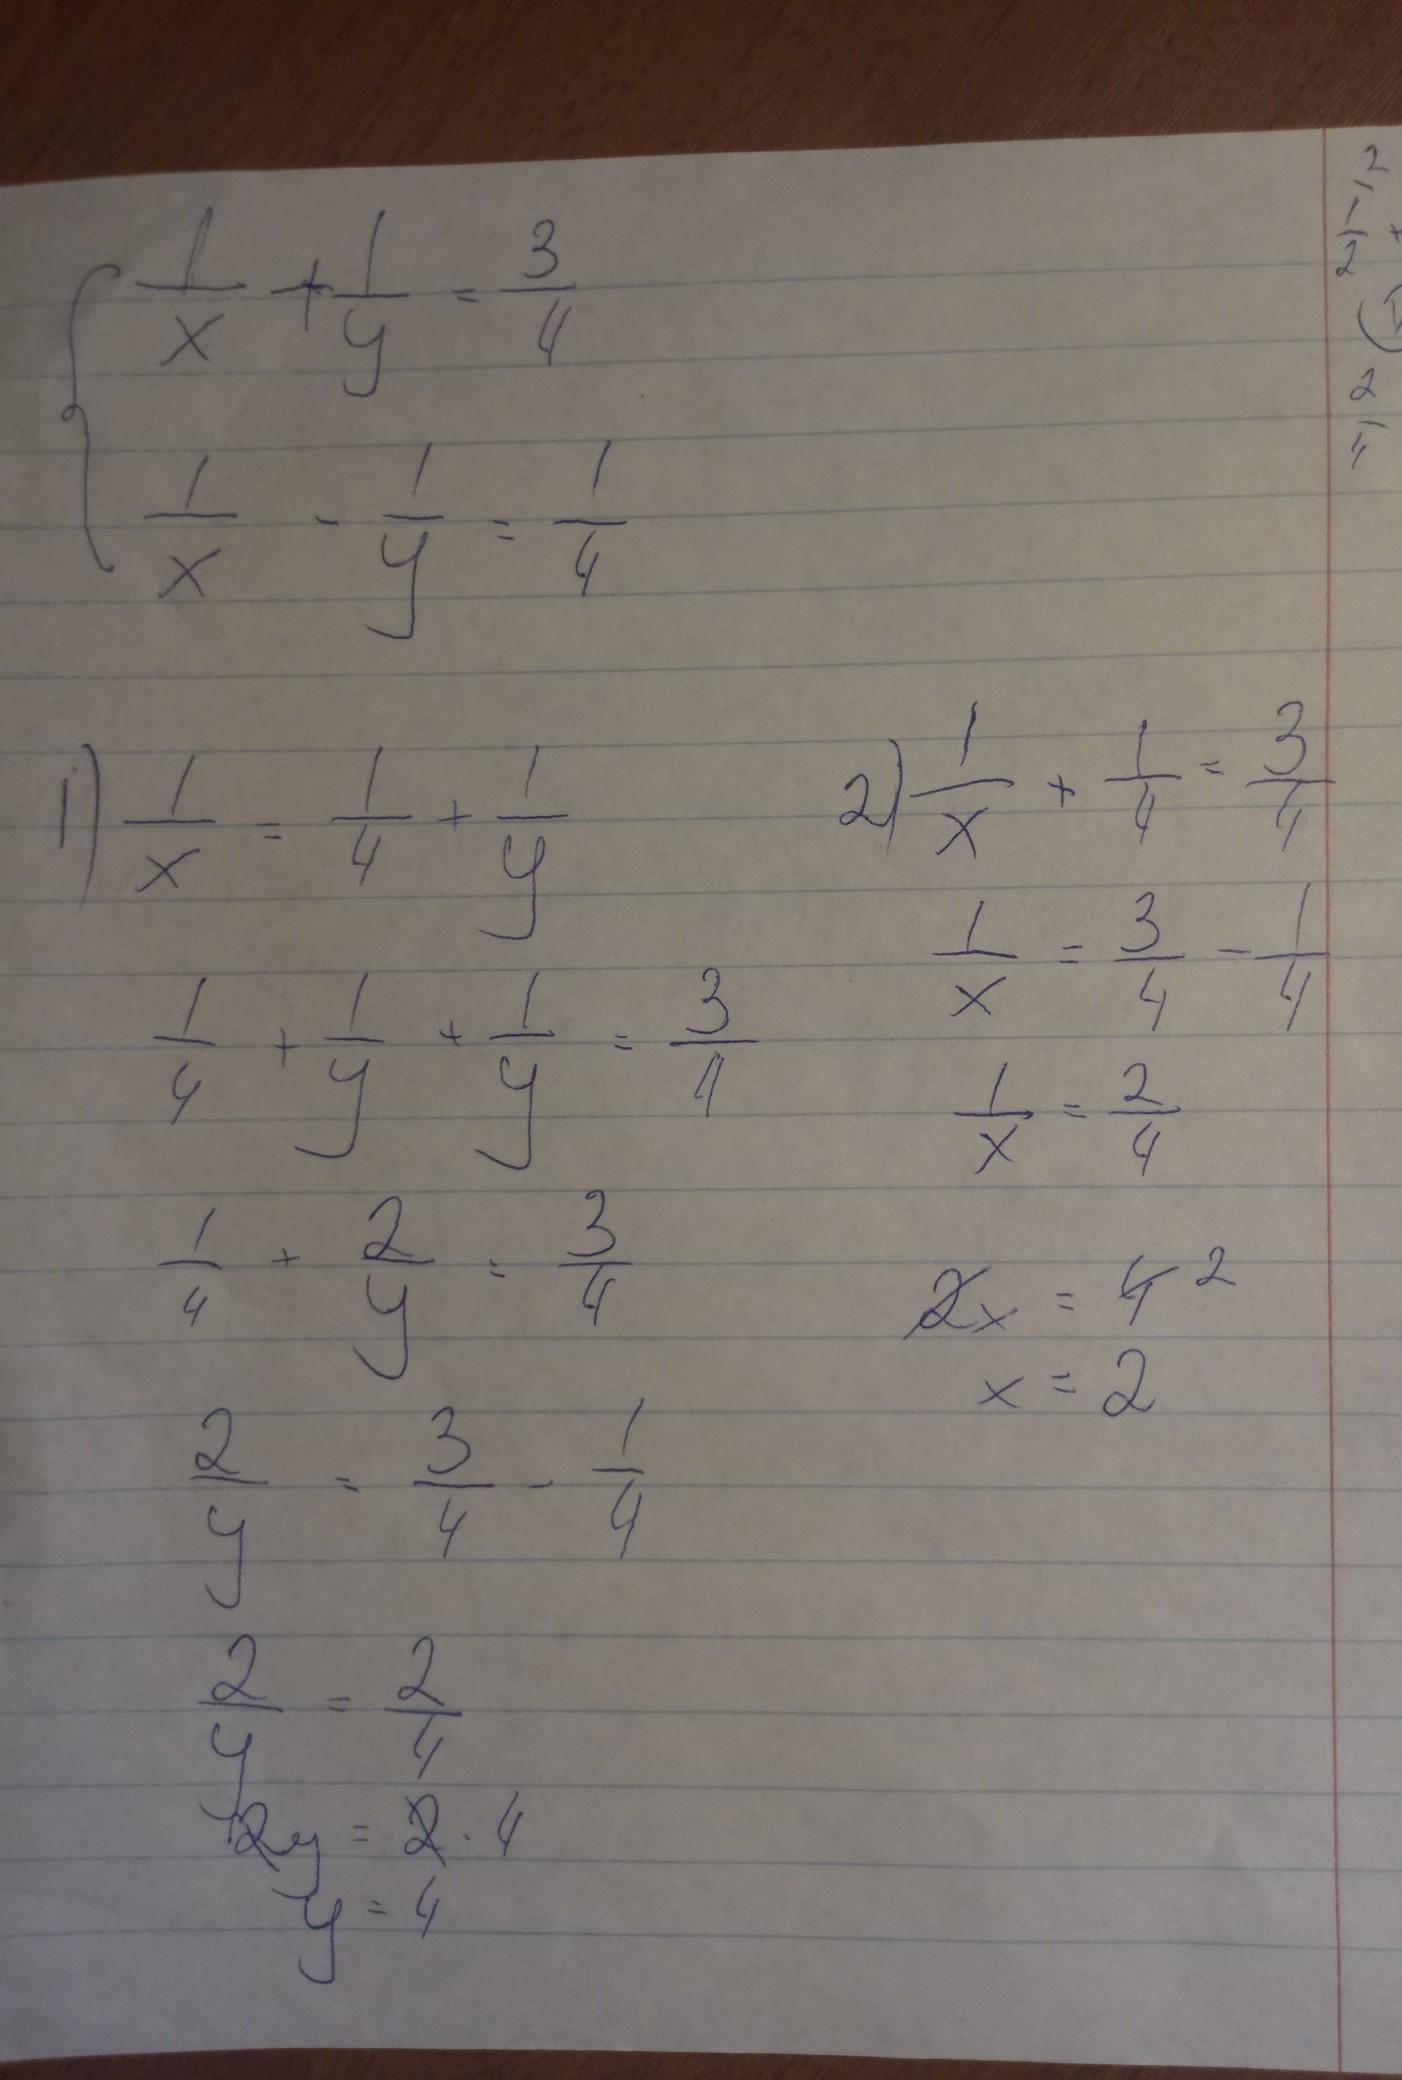 1/x + 1/y = 3/4
1/x - 1/y = 1/4
1) 1/x = 1/4 + 1/y
1/4 + 1/y + 1/y = 3/4
1/4 + 2/y = 3/4
2/y = 3/4 - 1/4
2/y = 2/4
2y = 2 · 4
y = 4
2) 1/x + 1/4 = 3/4
1/x = 3/4 - 1/4
1/x = 2/4
2x = 4 2
x = 2
2
1/2 +
2/4